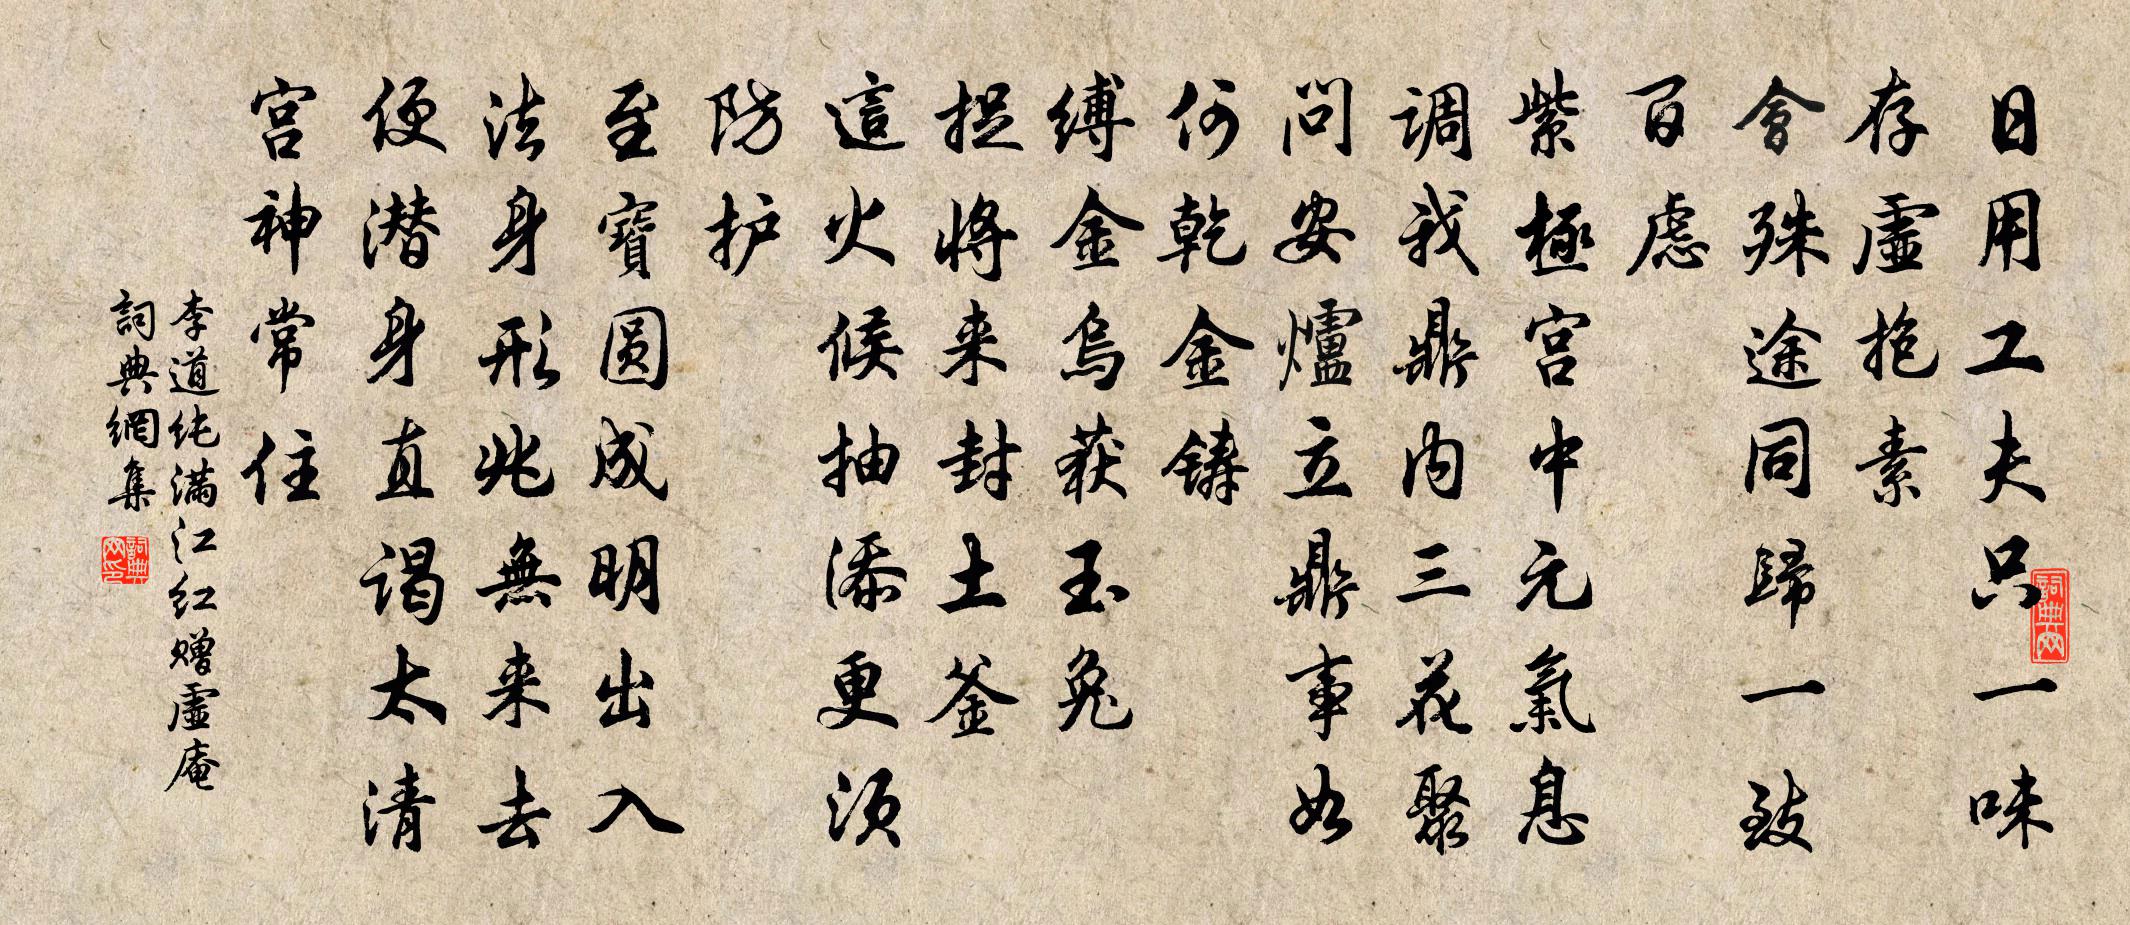 日用工夫只一味
存虛抱素
會殊途同歸一致
百慮
紫極宫中元氣息
调我鼎内三花聚
问安爐立鼎事如
何乾金鑄
缚金烏获玉兔
捉将来封土釜
這火候抽添更须
防护
至寶圆成明出入
法身形兆無来去
便潜身直谒太清
宫神常住
李道纯满江红赠虛庵
詞典網集
詞典网
詞典网印